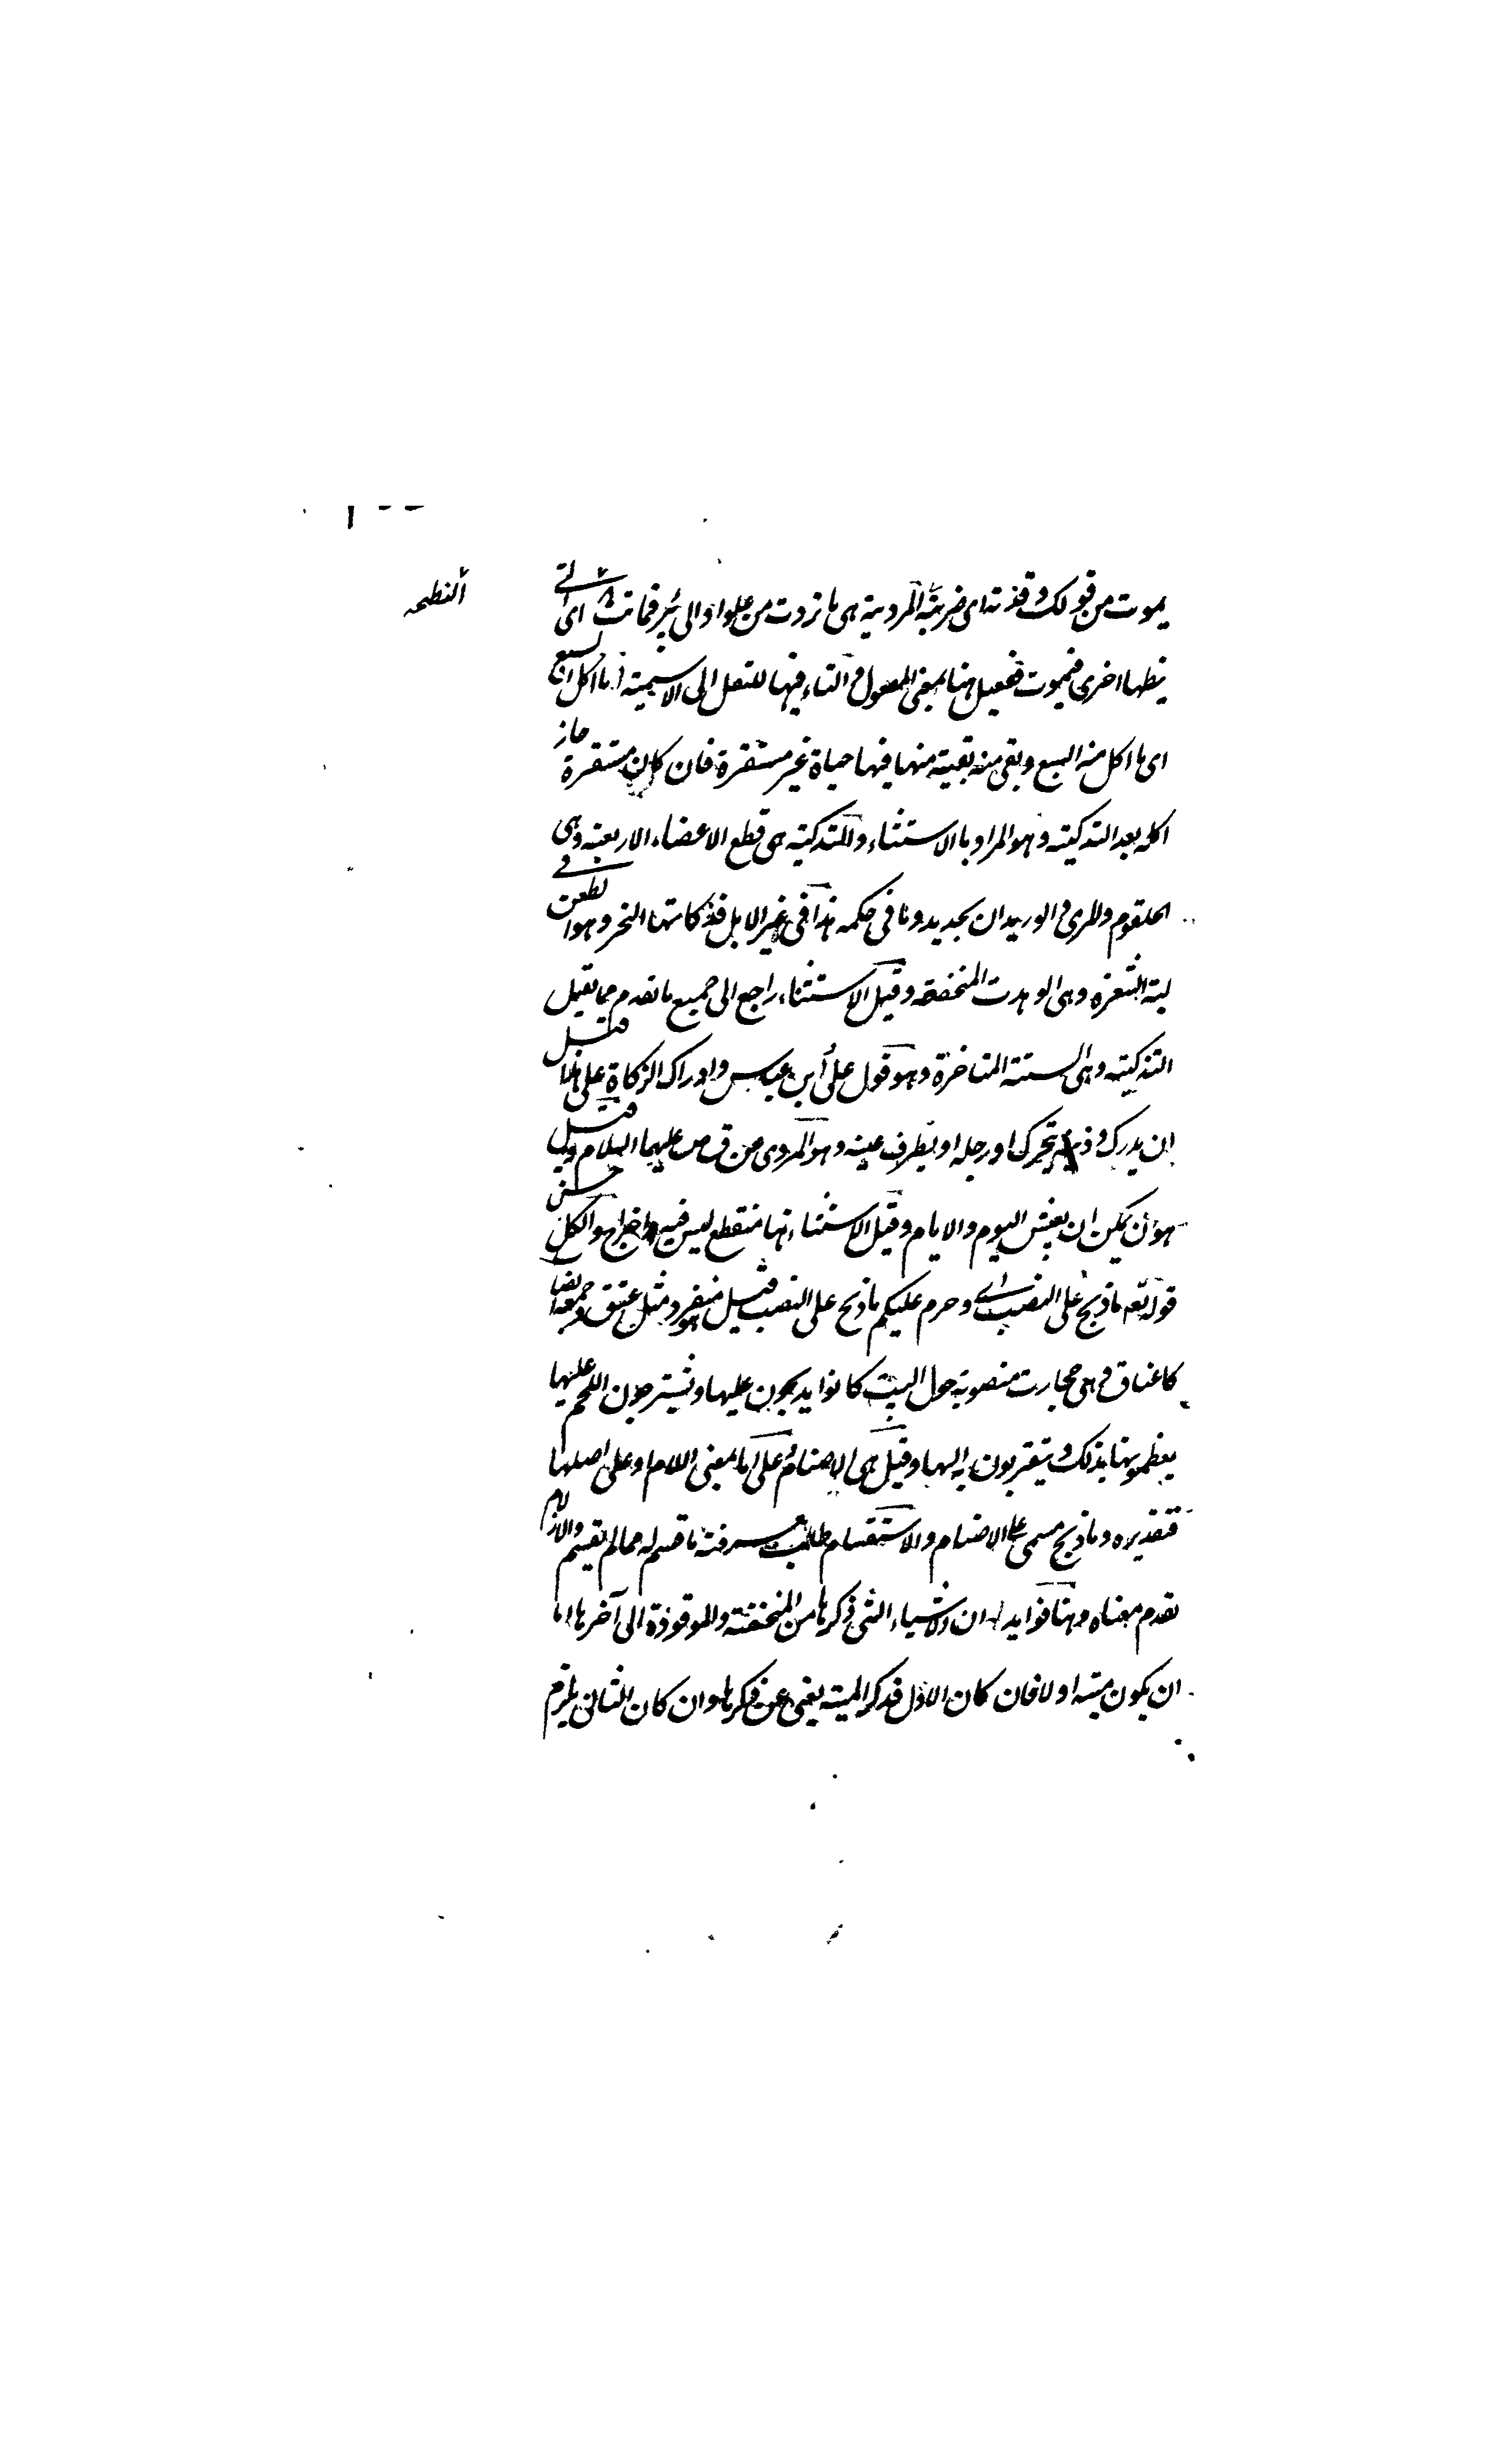 يموت من قولك وقذته اى ضربته المردية هى ما تردت من علو او الى بئر فماتت اى التى
النطيحه
ينطحها اخرى فيموت ففعيل هنا بمعنى المفعول و التاء فيها للنقل الى الاسمية ما اكل السبع
اى ما اكل منه السبع وبقى منه بقية منها فيها حياة غير مستقرة فان كان مستقرة جاز
اكله بعد التذكية وهو المراد بالاستثناء والتذكية هى قطع الاعضاء الاربعة وهى
الحلقوم والمرى و الوريدان بحديد وما فى حكمه هذا فى غير الابل فذكاتها النحر وهو الطعن فى
لبة الثغره وهى الوهدت المنخفضه وقيل الاستثناء راجع الى جميع ما تقدم مما يقبل
التذكية وهى الستة المتاخرة وهو قول على و ابن عباس وادراك الزكاة على هذا قيل
ان يدرك و ذنبه يتحرك او رجله او يطرف عينه وهو المروى من ق ص عليهما السلام وقيل
هو ان يمكن ان يعيش اليوم والايام وقيل الاستثناء هنا منقطع ليس فيه اخراج والكل حسن
قوله تعه ما ذبح على النصب اى وحرم عليكم ما ذبح على النصب قيل هو منفرد مثل عنق وجمعه انصاب
كاعناق و هى حجارت منصوبة حول البيت كانوا يذبحون عليها ويشرحون اللحم عليها
يعظمونها بذلك و يتقربون به اليها وقيل هى الاصنام و على اما بمعنى اللام او على اصلها
فتقديره وما ذبح مسمى على الاصنام والاستقسام طلب معرفة ما قسم له مما لم يقسم والازلام
تقدم معناه وهنا فوايد ا ان الاشياء التى ذكرها من المنخنقة والموقوذة الى آخرها اما
ان يكون ميتة او لا فان كان الاول فذكر الميتة يغنى عن ذكرها وان كان الثانى يلزم